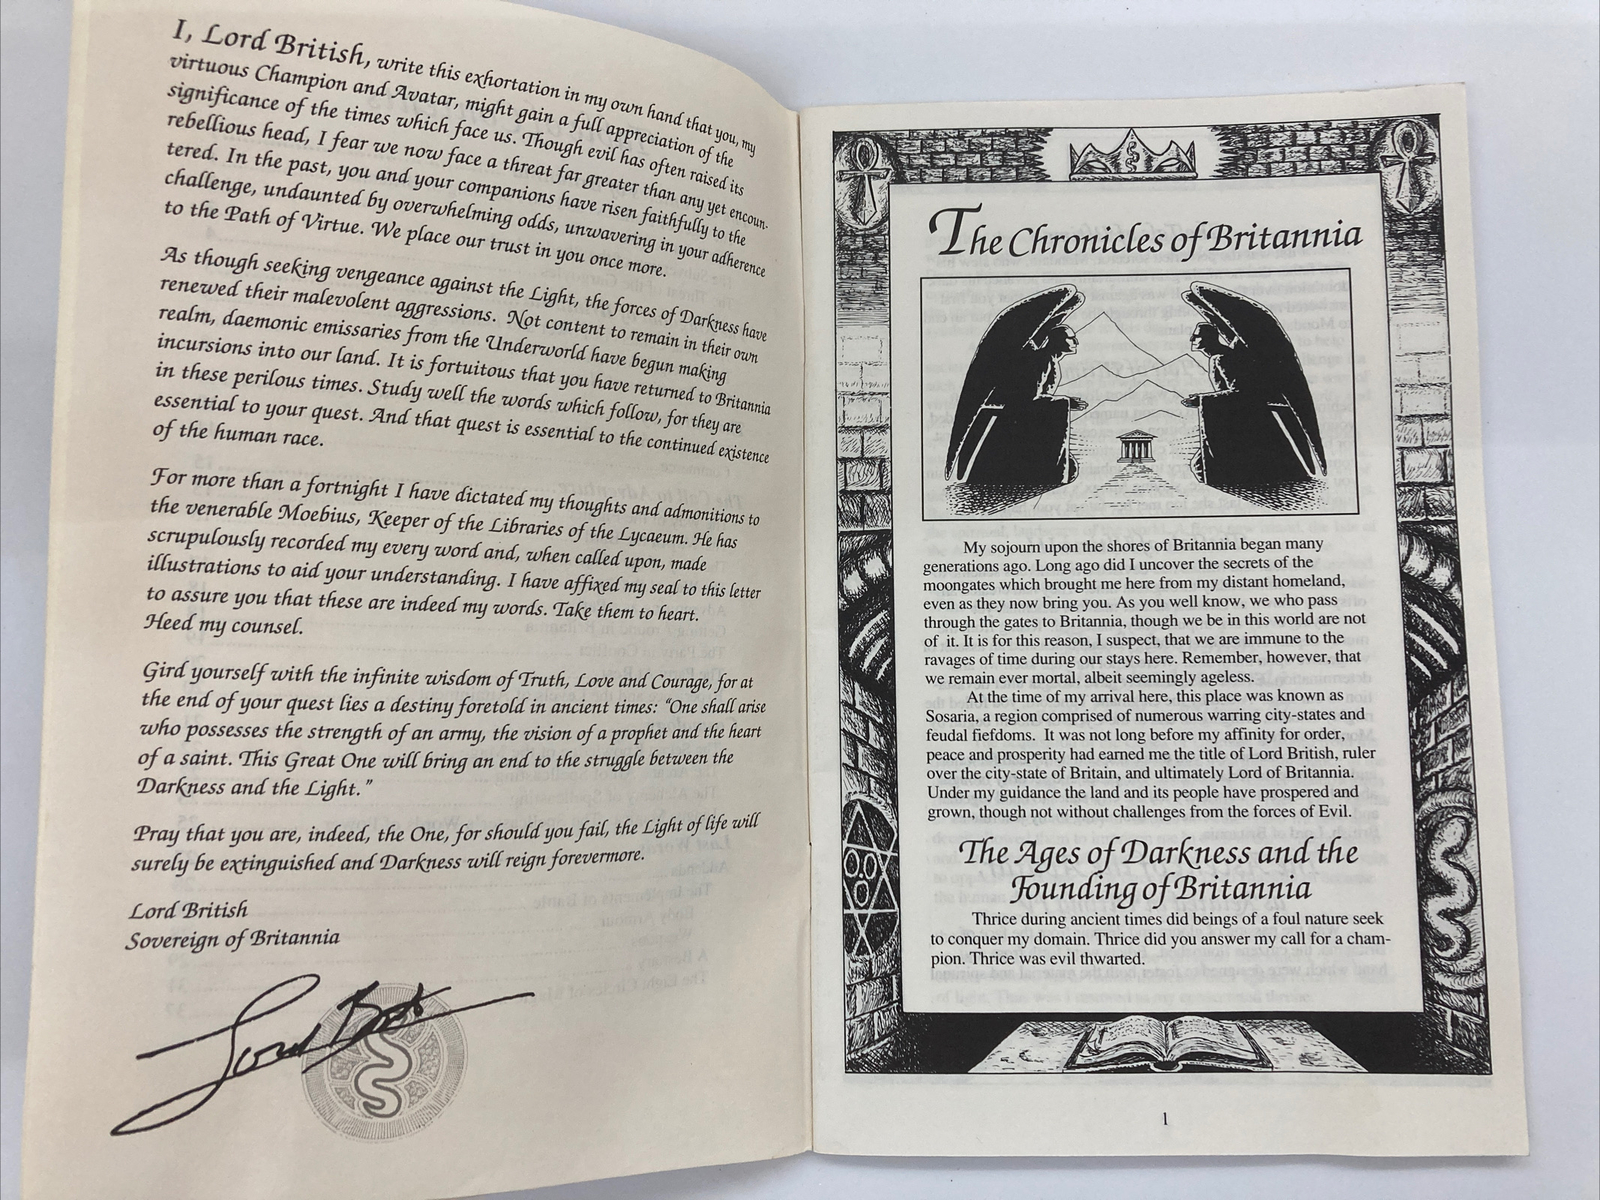 I, Lord British, write this exhortation in my own hand that you, my
virtuous Champion and Avatar, might gain a full appreciation of the
significance of the times which face us. Though evil has often raised its
rebellious head, I fear we now face a threat far greater than any yet encoun-
tered. In the past, you and your companions have risen faithfully to the
challenge, undaunted by overwhelming odds, unwavering in your adherence
to the Path of Virtue. We place our trust in you once more.
As though seeking vengeance against the Light, the forces of Darkness have
renewed their malevolent aggressions. Not content to remain in their own
realm, daemonic emissaries from the Underworld have begun making
incursions into our land. It is fortuitous that you have returned to Britannia
in these perilous times. Study well the words which follow, for they are
essential to your quest. And that quest is essential to the continued existence
of the human race.
For more than a fortnight I have dictated my thoughts and admonitions to
the venerable Moebius, Keeper of the Libraries of the Lycaeum. He has
scrupulously recorded my every word and, when called upon, made
illustrations to aid your understanding. I have affixed my seal to this letter
to assure you that these are indeed my words. Take them to heart.
Heed my counsel.
Gird yourself with the infinite wisdom of Truth, Love and Courage, for at
the end of your quest lies a destiny foretold in ancient times: “One shall arise
who possesses the strength of an army, the vision of a prophet and the heart
of a saint. This Great One will bring an end to the struggle between the
Darkness and the Light.”
Pray that you are, indeed, the One, for should you fail, the Light of life will
surely be extinguished and Darkness will reign forevermore.
Lord British
Sovereign of Britannia
Lord British
The Chronicles of Britannia
My sojourn upon the shores of Britannia began many
generations ago. Long ago did I uncover the secrets of the
moongates which brought me here from my distant homeland,
even as they now bring you. As you well know, we who pass
through the gates to Britannia, though we be in this world are not
of it. It is for this reason, I suspect, that we are immune to the
ravages of time during our stays here. Remember, however, that
we remain ever mortal, albeit seemingly ageless.
At the time of my arrival here, this place was known as
Sosaria, a region comprised of numerous warring city-states and
feudal fiefdoms. It was not long before my affinity for order,
peace and prosperity had earned me the title of Lord British, ruler
over the city-state of Britain, and ultimately Lord of Britannia.
Under my guidance the land and its people have prospered and
grown, though not without challenges from the forces of Evil.
The Ages of Darkness and the
Founding of Britannia
Thrice during ancient times did beings of a foul nature seek
to conquer my domain. Thrice did you answer my call for a cham-
pion. Thrice was evil thwarted.
1